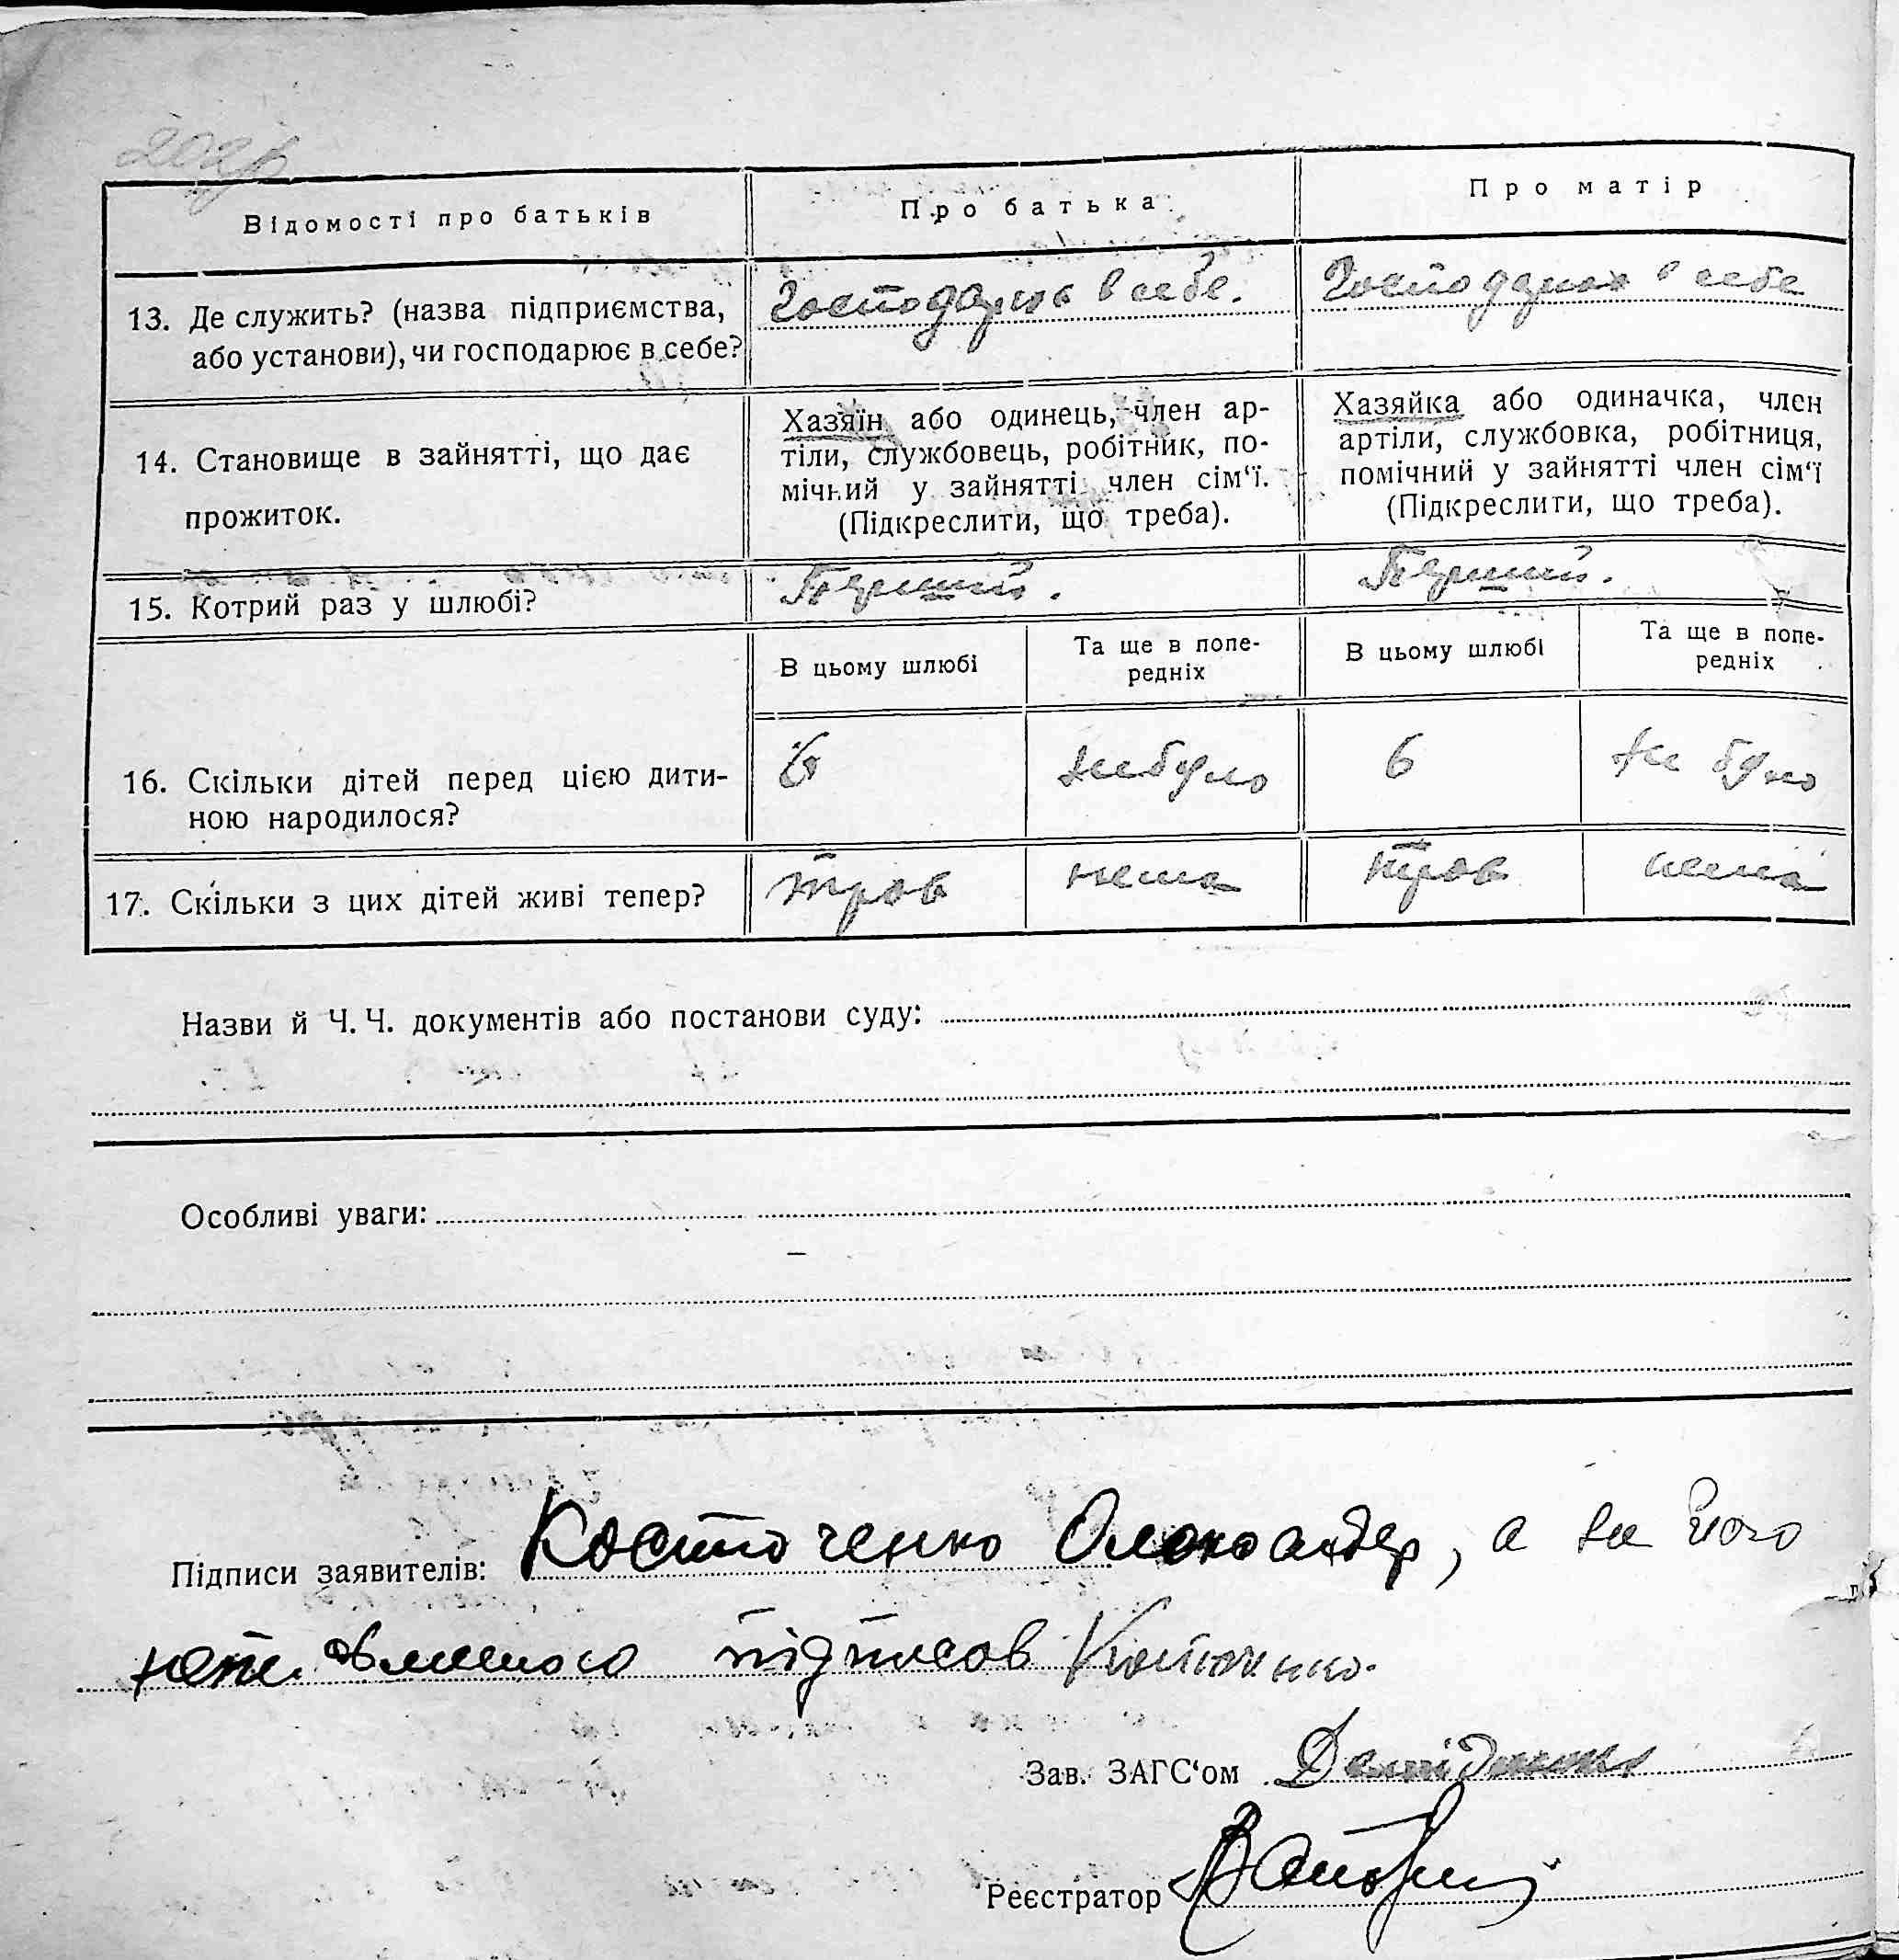 202 зв
Відомості про батьків
Про батька
Про матір
13. Де служить? (назва підприємства,
або установи), чи господарює в себе?
Господарює в себе.
Господарює в себе
14. Становище в зайнятті, що дає
прожиток.
Хазяїн або одинець, член ар-
тіли, службовець, робітник, по-
мічний у зайнятті член сім‘ї.
(Підкреслити, що треба).
Хазяйка або одиначка, член
артіли, службовка, робітниця,
помічний у зайнятті член сім‘ї
(Підкреслити, що треба).
15. Котрий раз у шлюбі?
Перший.
Перший.
В цьому шлюбі
Та ще в попе-
редніх
В цьому шлюбі
Та ще в попе-
редніх
16. Скільки дітей перед цією дити-
ною народилося?
6
не було
6
не було
17. Скільки з цих дітей живі тепер?
троє
нема
троє
нема
Назви й Ч. Ч. документів або постанови суду:
Особливі уваги:
Підписи заявителів: Костюченко Олександер, а за його
підписав Костюченко
Зав. ЗАГС‘ом
Реєстратор